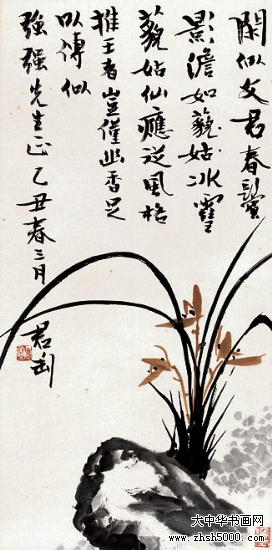 閒似文君春鬢
影澹如藐姑冰雪
藐姑仙應從風格
推士者豈僅幽香足
以傳似
強強先生正乙丑春三月
君
大中华书画网
www.zhsh5000.com